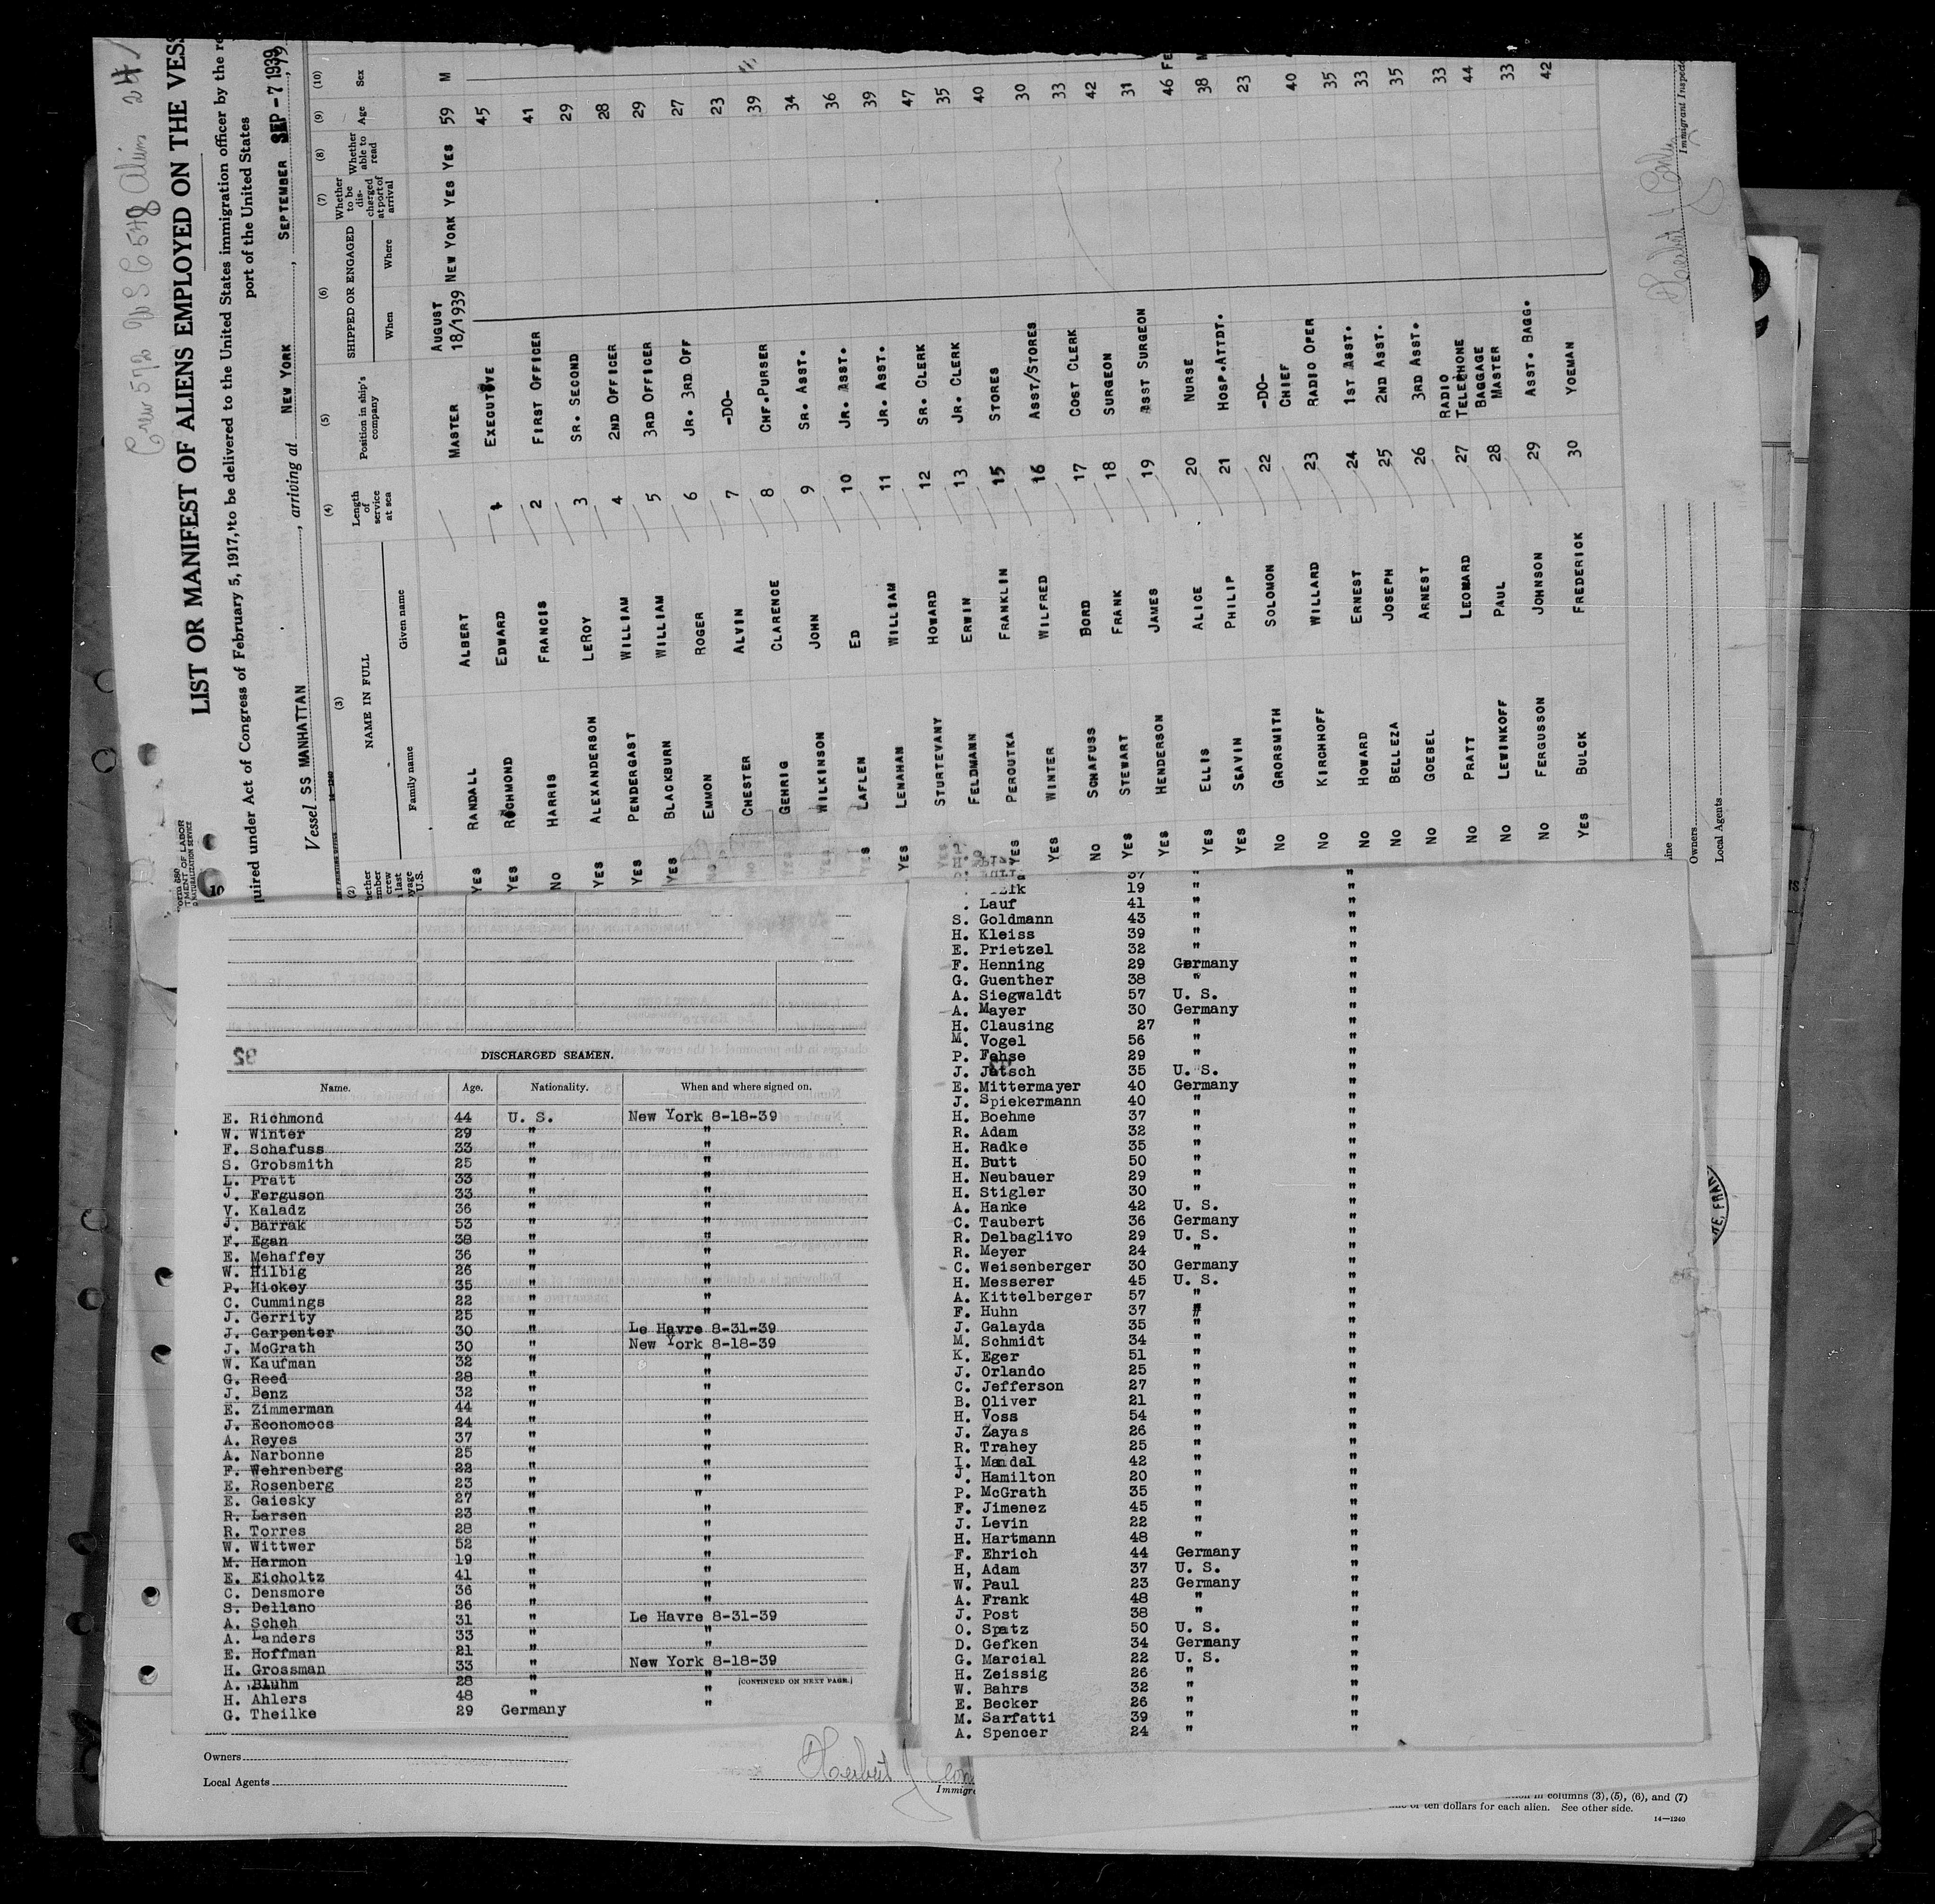 Crew 572 U S C 548 Alien 24
LIST OR MANIFEST OF ALIENS EMPLOYED ON THE VESS
quired under Act of Congress of February 5, 1917, to be delivered to the United States immigration officer by the re
port of the United States
Vessel SS MANHATTAN, arriving at NEW YORK, SEPTEMBER SEP - 7 1939, 19
(2) (3) (4) (5) (6) (7) (8) (9) (10)
NAME IN FULL Length of service at sea Position in ship's company SHIPPED OR ENGAGED Whether to be discharged at port of arrival Whether able to read Age Sex
Family name Given name When Where
YES RANDALL ALBERT MASTER AUGUST 18/1939 NEW YORK YES YES 59 M
YES RICHMOND EDWARD 1 EXECUTIVE 45
NO HARRIS FRANCIS 2 FIRST OFFICER 41
YES ALEXANDERSON LEROY 3 SR. SECOND 29
YES PENDERGAST WILLIAM 4 2ND OFFICER 28
YES BLACKBURN WILLIAM 5 3RD OFFICER 29
NO EMMON ROGER 6 JR. 3RD OFF 27
NO CHESTER ALVIN 7 -DO- 23
YES GEHRIG CLARENCE 8 CHF.PURSER 39
YES WILKINSON JOHN 9 SR. ASST. 34
YES LAFLEN ED 10 JR. ASST. 36
YES LENAHAN WILLIAM 11 JR. ASST. 39
YES STURTEVANT HOWARD 12 SR. CLERK 47
FELDMANN ERWIN 13 JR. CLERK 35
YES PEROUTKA FRANKLIN 15 STORES 40
YES WINTER WILFRED 16 ASST/STORES 30
NO SCHAFUSS BORD 17 COST CLERK 33
YES STEWART FRANK 18 SURGEON 42
YES HENDERSON JAMES 19 ASST SURGEON 31
YES ELLIS ALICE 20 NURSE 46 FE
YES SEAVIN PHILIP 21 HOSP.ATTDT. 38 M
NO GRORSMITH SOLOMON 22 -DO- 23
NO KIRCHHOFF WILLARD 23 CHIEF RADIO OPER 40
NO HOWARD ERNEST 24 1ST ASST. 35
NO BELLEZA JOSEPH 25 2ND ASST. 33
NO GOEBEL ARNEST 26 3RD ASST. 35
NO PRATT LEONARD 27 RADIO TELEPHONE 33
NO LEWINKOFF PAUL 28 BAGGAGE MASTER 44
NO FERGUSSON JOHNSON 29 ASST. BAGG. 33
YES BULCK FREDERICK 30 YOEMAN 42
Owners
Local Agents
Immigrant Inspec
DISCHARGED SEAMEN.
Name. Age. Nationality. When and where signed on.
E. Richmond 44 U. S. New York 8-18-39
W. Winter 29 " "
F. Schafuss 33 " "
S. Grobsmith 25 " "
L. Pratt 33 " "
J. Ferguson 33 " "
V. Kaladz 36 " "
J. Barrak 53 " "
F. Egan 38 " "
E. Mehaffey 36 " "
W. Hilbig 26 " "
P. Hickey 35 " "
C. Cummings 22 " "
J. Gerrity 25 " "
J. Carpenter 30 " Le Havre 8-31-39
J. McGrath 30 " New York 8-18-39
W. Kaufman 32 " "
G. Reed 28 " "
J. Benz 32 " "
E. Zimmerman 44 " "
J. Economocs 24 " "
A. Reyes 37 " "
A. Narbonne 25 " "
F. Wehrenberg 22 " "
E. Rosenberg 23 " "
E. Gaiesky 27 " "
R. Larsen 23 " "
R. Torres 28 " "
W. Wittwer 52 " "
M. Harmon 19 " "
E. Eicholtz 41 " "
C. Densmore 36 " "
S. Dellano 26 " "
A. Scheh 31 " Le Havre 8-31-39
A. Landers 33 " "
E. Hoffman 21 " "
H. Grossman 33 " New York 8-18-39
A. Bluhm 28 " "
H. Ahlers 48 " "
G. Theilke 29 Germany "
[CONTINUED ON NEXT PAGE.]
37 " "
19 " "
. Lauf 41 " "
S. Goldmann 43 " "
H. Kleiss 39 " "
E. Prietzel 32 " "
F. Henning 29 Germany "
G. Guenther 38 " "
A. Siegwaldt 57 U. S. "
A. Mayer 30 Germany "
H. Clausing 27 " "
M. Vogel 56 " "
P. Fahse 29 " "
J. Jatsch 35 U. S. "
E. Mittermayer 40 Germany "
J. Spiekermann 40 " "
H. Boehme 37 " "
R. Adam 32 " "
H. Radke 35 " "
H. Butt 50 " "
H. Neubauer 29 " "
H. Stigler 30 " "
A. Hanke 42 U. S. "
C. Taubert 36 Germany "
R. Delbaglivo 29 U. S. "
R. Meyer 24 " "
C. Weisenberger 30 Germany "
H. Messerer 45 U. S. "
A. Kittelberger 57 " "
F. Huhn 37 " "
J. Galayda 35 " "
M. Schmidt 34 " "
K. Eger 51 " "
J. Orlando 25 " "
C. Jefferson 27 " "
B. Oliver 21 " "
H. Voss 54 " "
J. Zayas 26 " "
R. Trahey 25 " "
I. Mandal 42 " "
J. Hamilton 20 " "
P. McGrath 35 " "
F. Jimenez 45 " "
J. Levin 22 " "
H. Hartmann 48 " "
F. Ehrich 44 Germany "
H, Adam 37 U. S. "
W. Paul 23 Germany "
A. Frank 48 " "
J. Post 38 " "
O. Spatz 50 U. S. "
D. Gefken 34 Germany "
G. Marcial 22 U. S. "
H. Zeissig 26 " "
W. Bahrs 32 " "
E. Becker 26 " "
M. Sarfatti 39 " "
A. Spencer 24 " "
Owners
Local Agents
Herbert J
Immigr
in columns (3), (5), (6), and (7)
of ten dollars for each alien. See other side.
14—1240